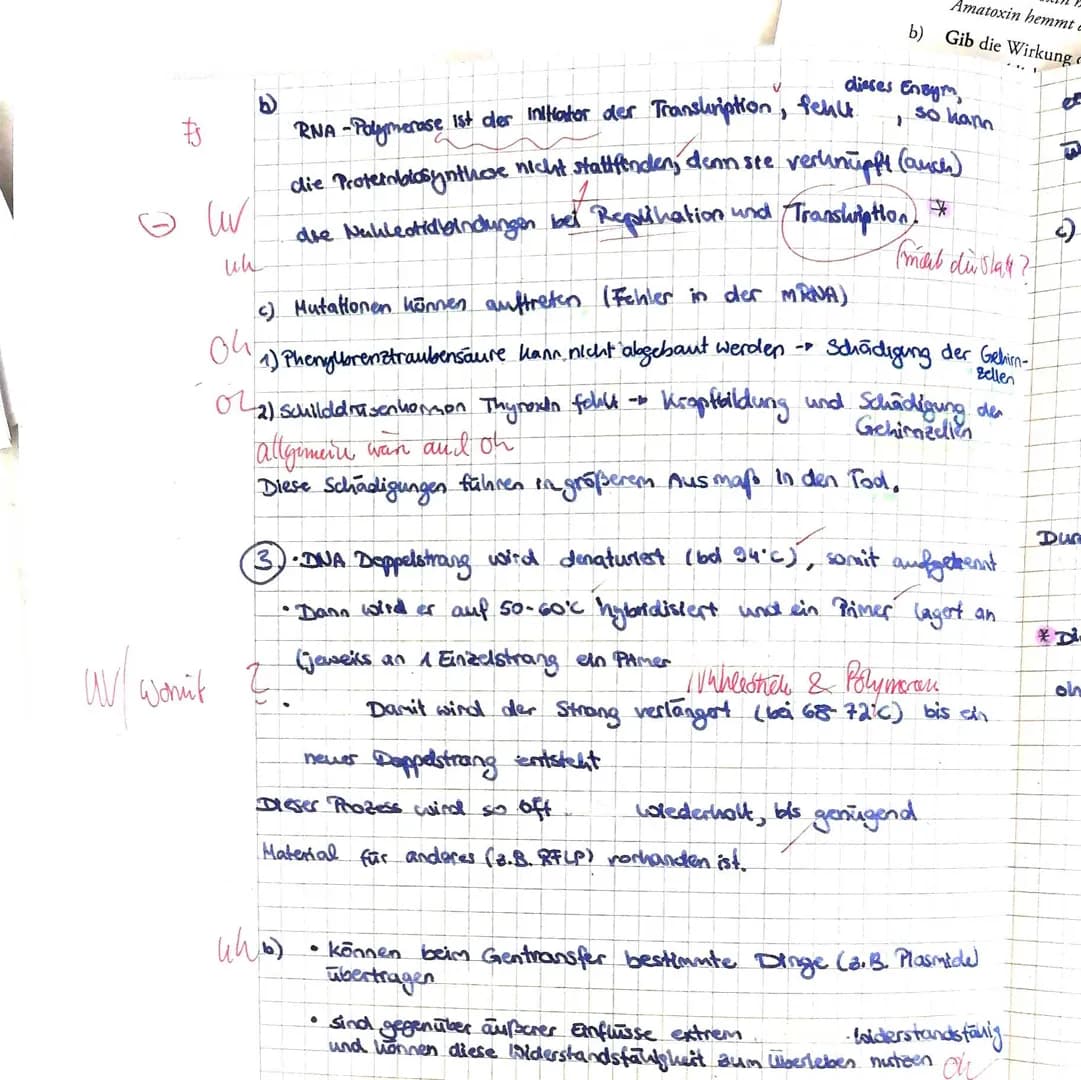 Amatoxin hemmt
b) Gib die Wirkung
b)
dieses Enzym,
RNA-Polymerase ist der Initiator der Transkription, fehlt, so kann
Fs
die Proteinbiosynthese nicht stattfinden, denn sie verknüpft (auch)
UV
die Nukleotidbindungen bei Replikation und Transkription. *
uk
c) Mutationen können auftreten (Fehler in der mRNA)
1) Phenylbrenztraubensäure kann nicht abgebaut werden → Schädigung der Gehirn-
zellen
2) Schilddrüsenhormon Thyroxin fehlt → Kropfbildung und Schädigung der
Gehirnzellen
allgemein wär auch ok
Diese Schädigungen führen in größerem Ausmaß in den Tod.
3 · DNA Doppelstrang wird denaturiert (bei 94°C), somit aufgetrennt
· Dann wird er auf 50-60°C hybridisiert und ein Primer lagert an
(jeweils an 1 Einzelstrang ein Primer
Nukleotide & Polymerase
UV/womit ?
· Damit wird der Strang verlängert (bei 68-72°C) bis ein
neuer Doppelstrang entsteht
Dieser Prozess wird so oft wiederholt, bis genügend
Material für anderes (z.B. RFLP) vorhanden ist.
b) · können beim Gentransfer bestimmte Dinge (z.B. Plasmide)
übertragen
· sind gegenüber äußerer Einflüsse extrem widerstandsfähig
und können diese Widerstandsfähigkeit zum Überleben nutzen
c)
Dur
* Di
oh